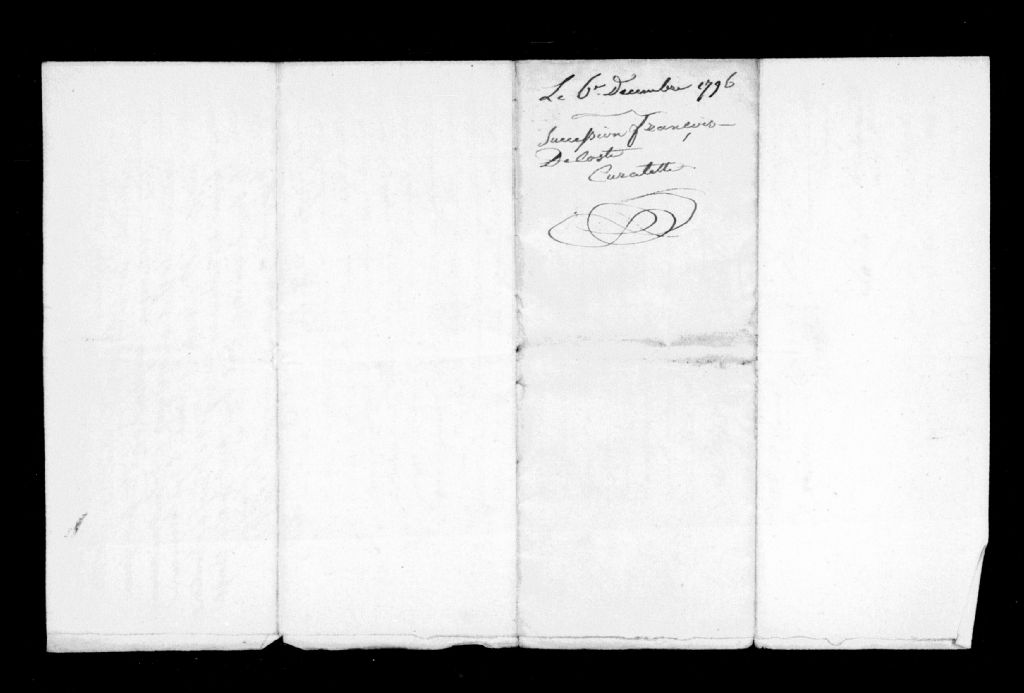 Le 6r. Decembre 1796
Succession François
Deloste
Curatelle